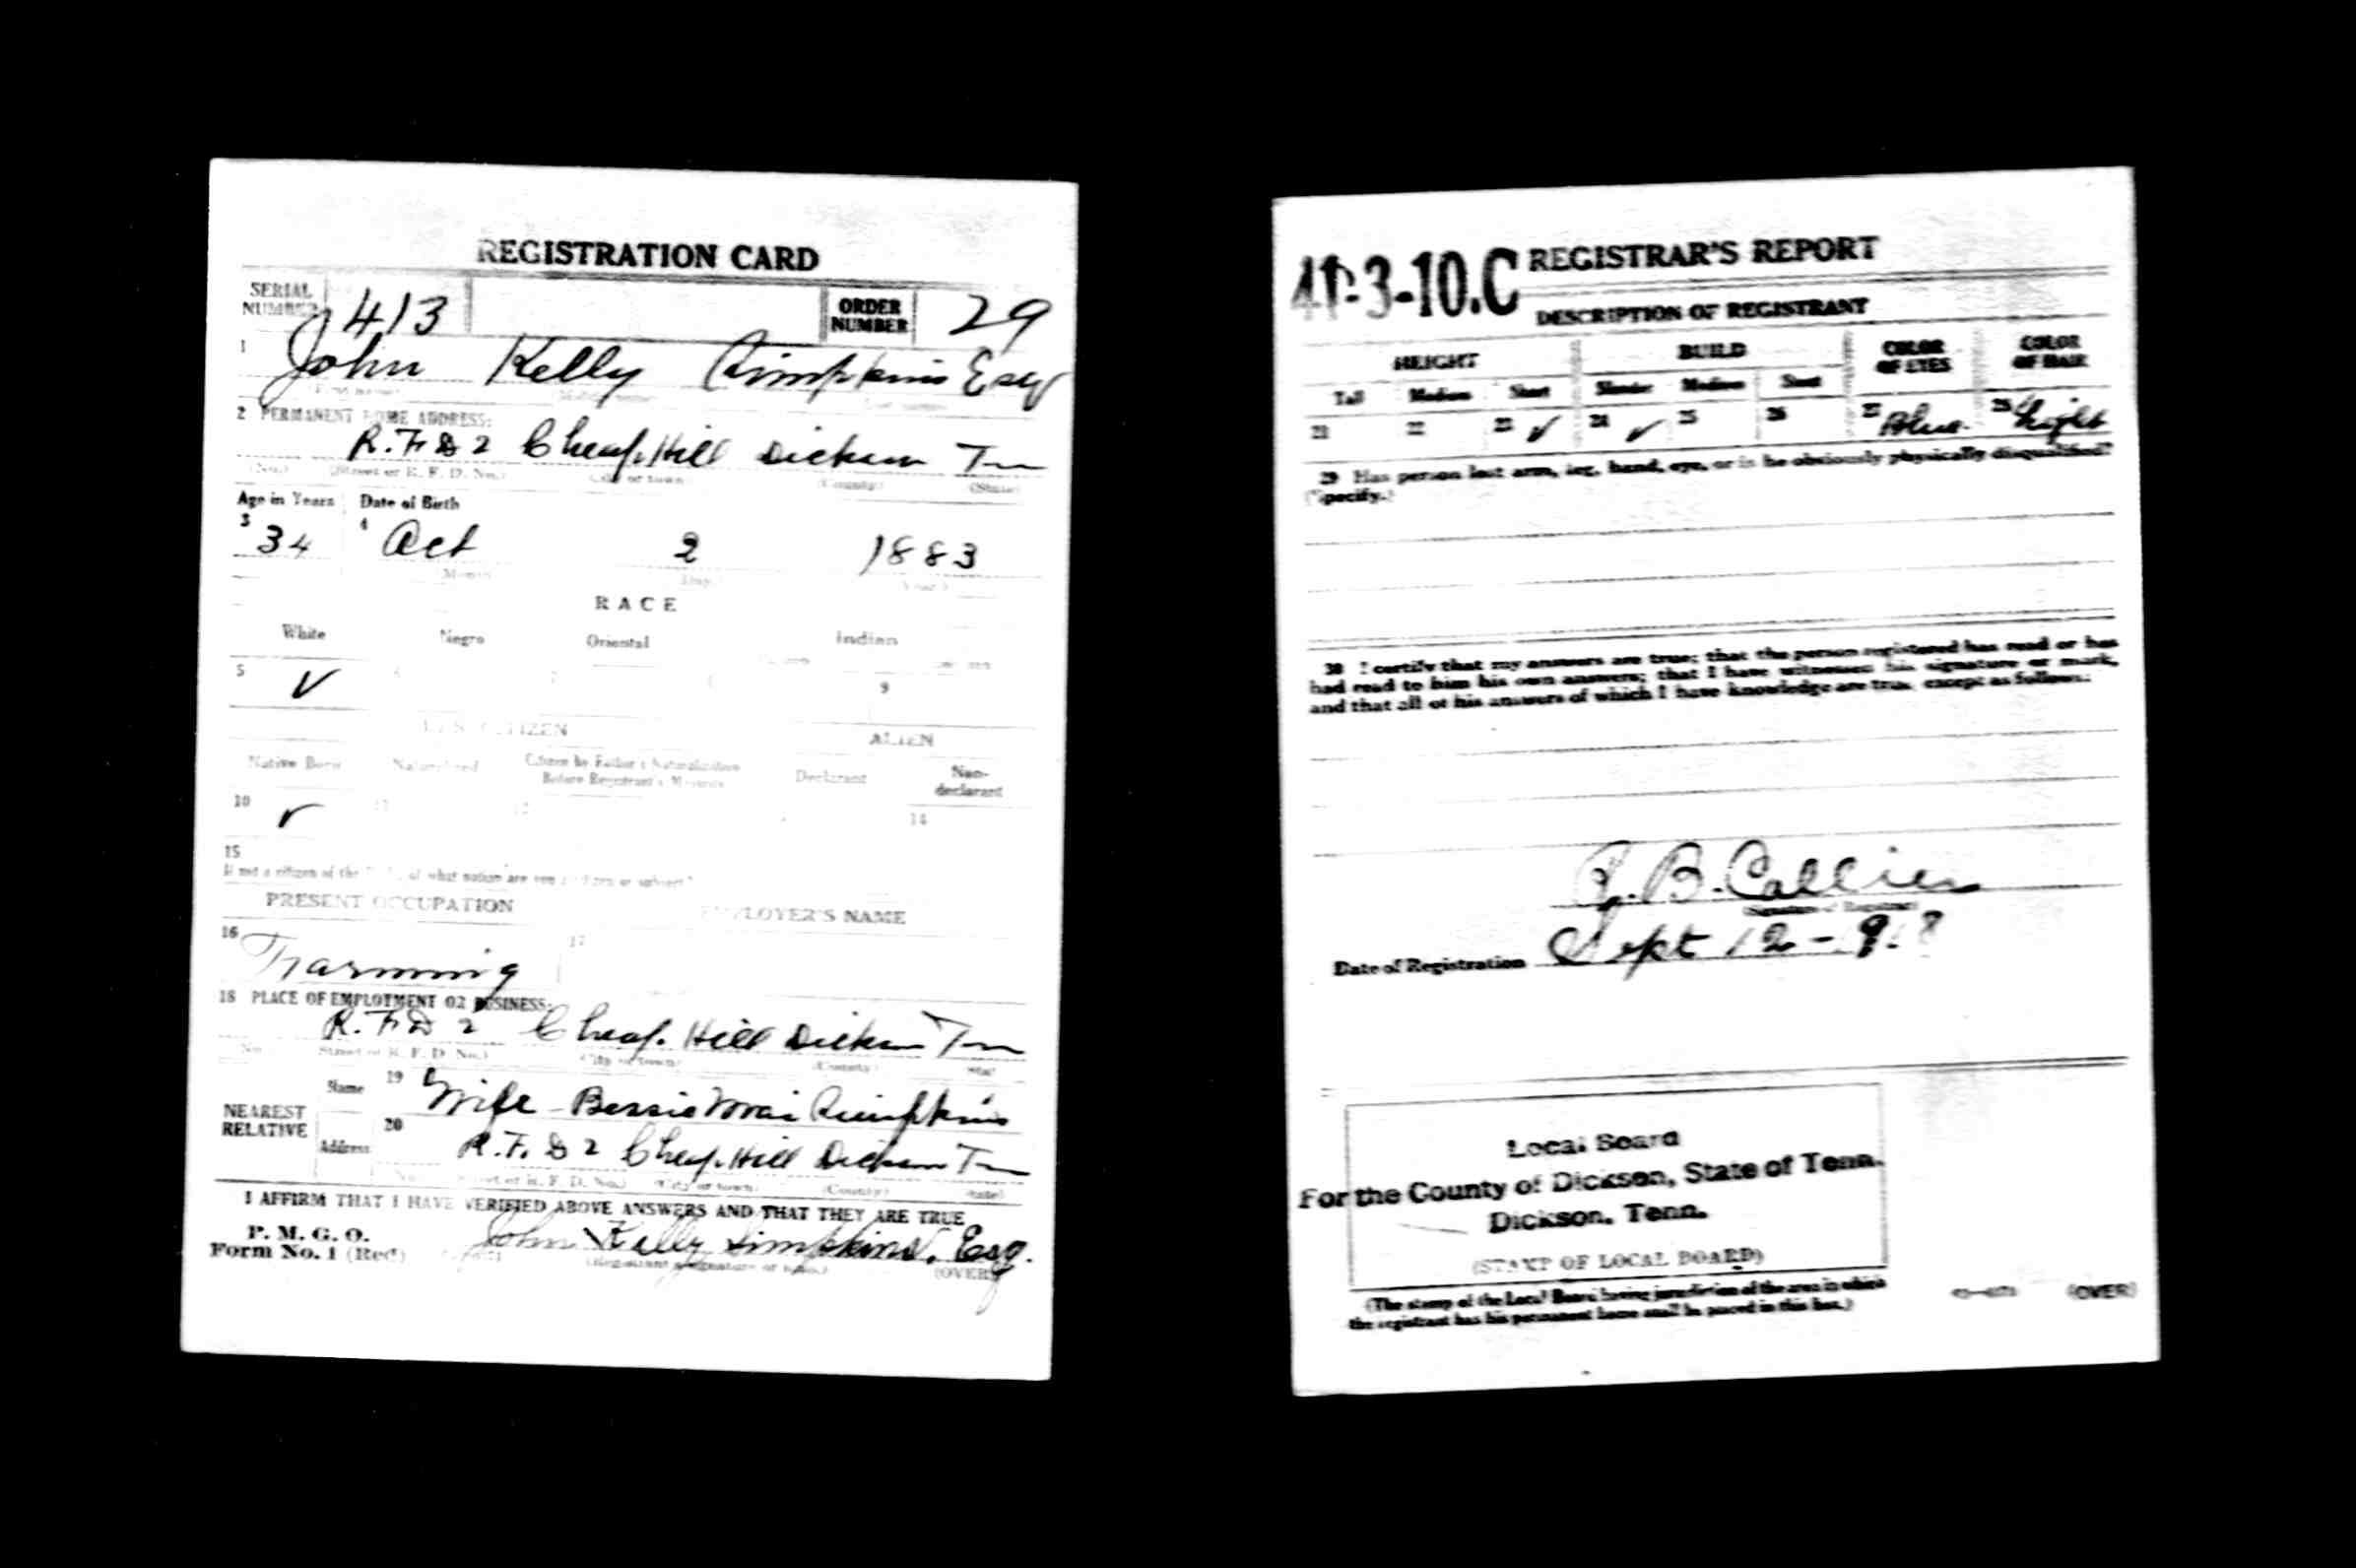 REGISTRATION CARD
SERIAL NUMBER 413 ORDER NUMBER 29
1 John Kelly Simpkins Esq
2 PERMANENT HOME ADDRESS:
R.F.D 2 Cheap. Hill Dickson Tn
(No.) (Street or R. F. D. No.) (City or town) (County) (State)
Age in Years Date of Birth
3 34 4 Oct 2 1883
(Month) (Day) (Year)
RACE
White Negro Oriental Indian
5 ✓ 9
U. S. CITIZEN ALIEN
Native Born Naturalized Citizen by Father's Naturalization Before Registrant's Majority Declarant Non-declarant
10 ✓ 11 12 14
15
If not a citizen of the U. S., of what nation are you a citizen or subject?
PRESENT OCCUPATION EMPLOYER'S NAME
16 Farming 17
18 PLACE OF EMPLOYMENT OR BUSINESS:
R.F.D 2 Cheap. Hill Dickson Tn
(No.) (Street or R. F. D. No.) (City or town) (County) (State)
NEAREST RELATIVE Name 19 Wife - Bessie Mai Simpkins
Address 20 R.F.D 2 Cheap. Hill Dickson Tn
(No.) (Street or R. F. D. No.) (City or town) (County) (State)
I AFFIRM THAT I HAVE VERIFIED ABOVE ANSWERS AND THAT THEY ARE TRUE
P. M. G. O.
Form No. 1 (Red) John Kelly Simpkins, Esq.
(Registrant's signature or mark) (OVER)
41-3-10.C REGISTRAR'S REPORT
DESCRIPTION OF REGISTRANT
HEIGHT BUILD COLOR OF EYES COLOR OF HAIR
Tall Medium Short Slender Medium Stout
21 22 23 ✓ 24 ✓ 25 26 27 Blue 28 Light
29 Has person lost arm, leg, hand, eye, or is he obviously physically disqualified?
(Specify.)
30 I certify that my answers are true; that the person registered has read or has
had read to him his own answers; that I have witnessed his signature or mark,
and that all of his answers of which I have knowledge are true, except as follows:
R. B. Collier
(Signature of Registrar)
Date of Registration Sept 12 -
Local Board
For the County of Dickson, State of Tenn.
Dickson, Tenn.
(STAMP OF LOCAL BOARD)
(The stamp of the Local Board having jurisdiction of the area in which
the registrant has his permanent home shall be placed in this box.)
(OVER)